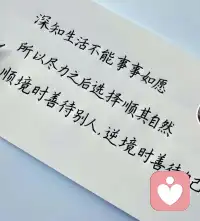 深知生活不能事事如愿
所以尽力之后选择顺其自然
顺境时善待别人,逆境时善待